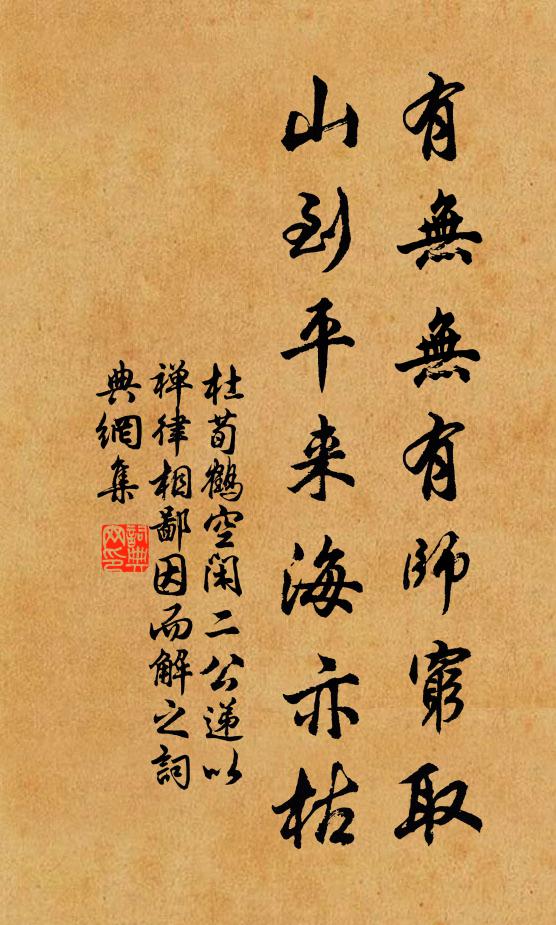 有無無有師窮取
山到平来海亦枯
杜荀鶴空閑二公递以
禅律相鄙因而解之詞
典網集
詞典
网印